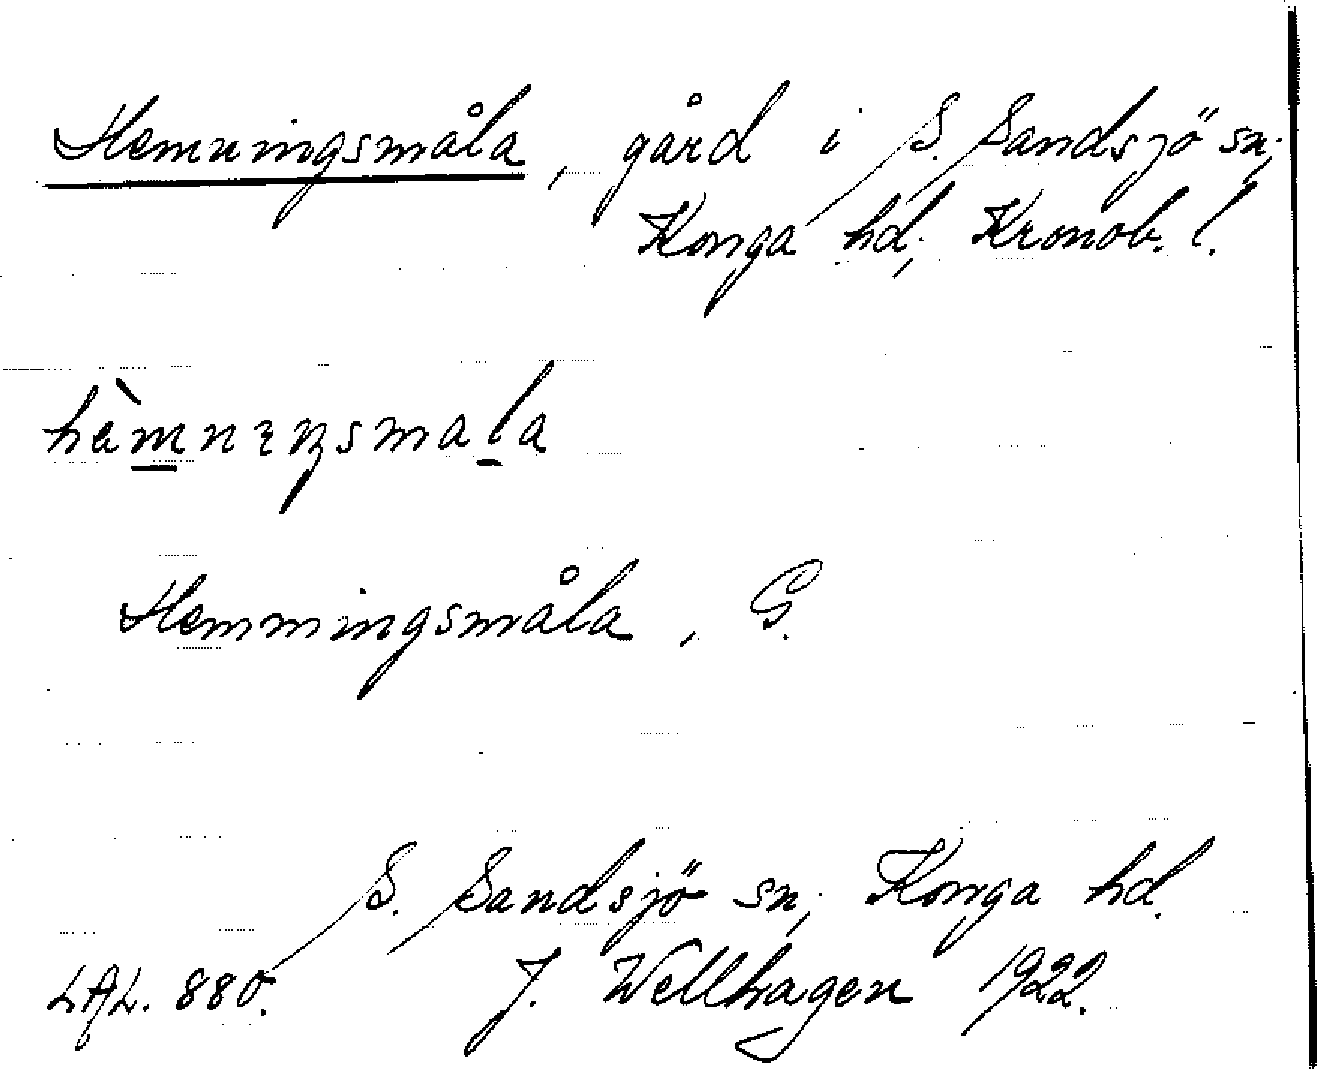 Hemningsmåla, gård i S. Sandsjö sn;
Konga hd; Kronob. l.
hèmnıŋsmala
Hemmingsmåla, G.
S. Sandsjö sn; Konga hd.
LAL. 880. J. Wellhagen 1922.